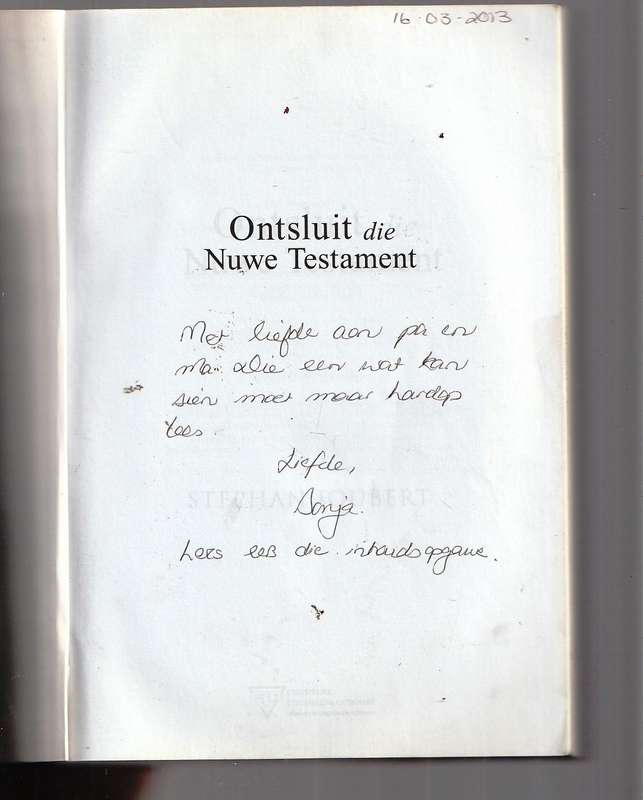 16-03-2013
Ontsluit die
Nuwe Testament
Met liefde aan pa en
ma. Die een wat kan
sien moet maar hardop
lees.
Liefde,
Sonja.
Lees eers die inhoudsopgawe.
STEPHAN JOUBERT